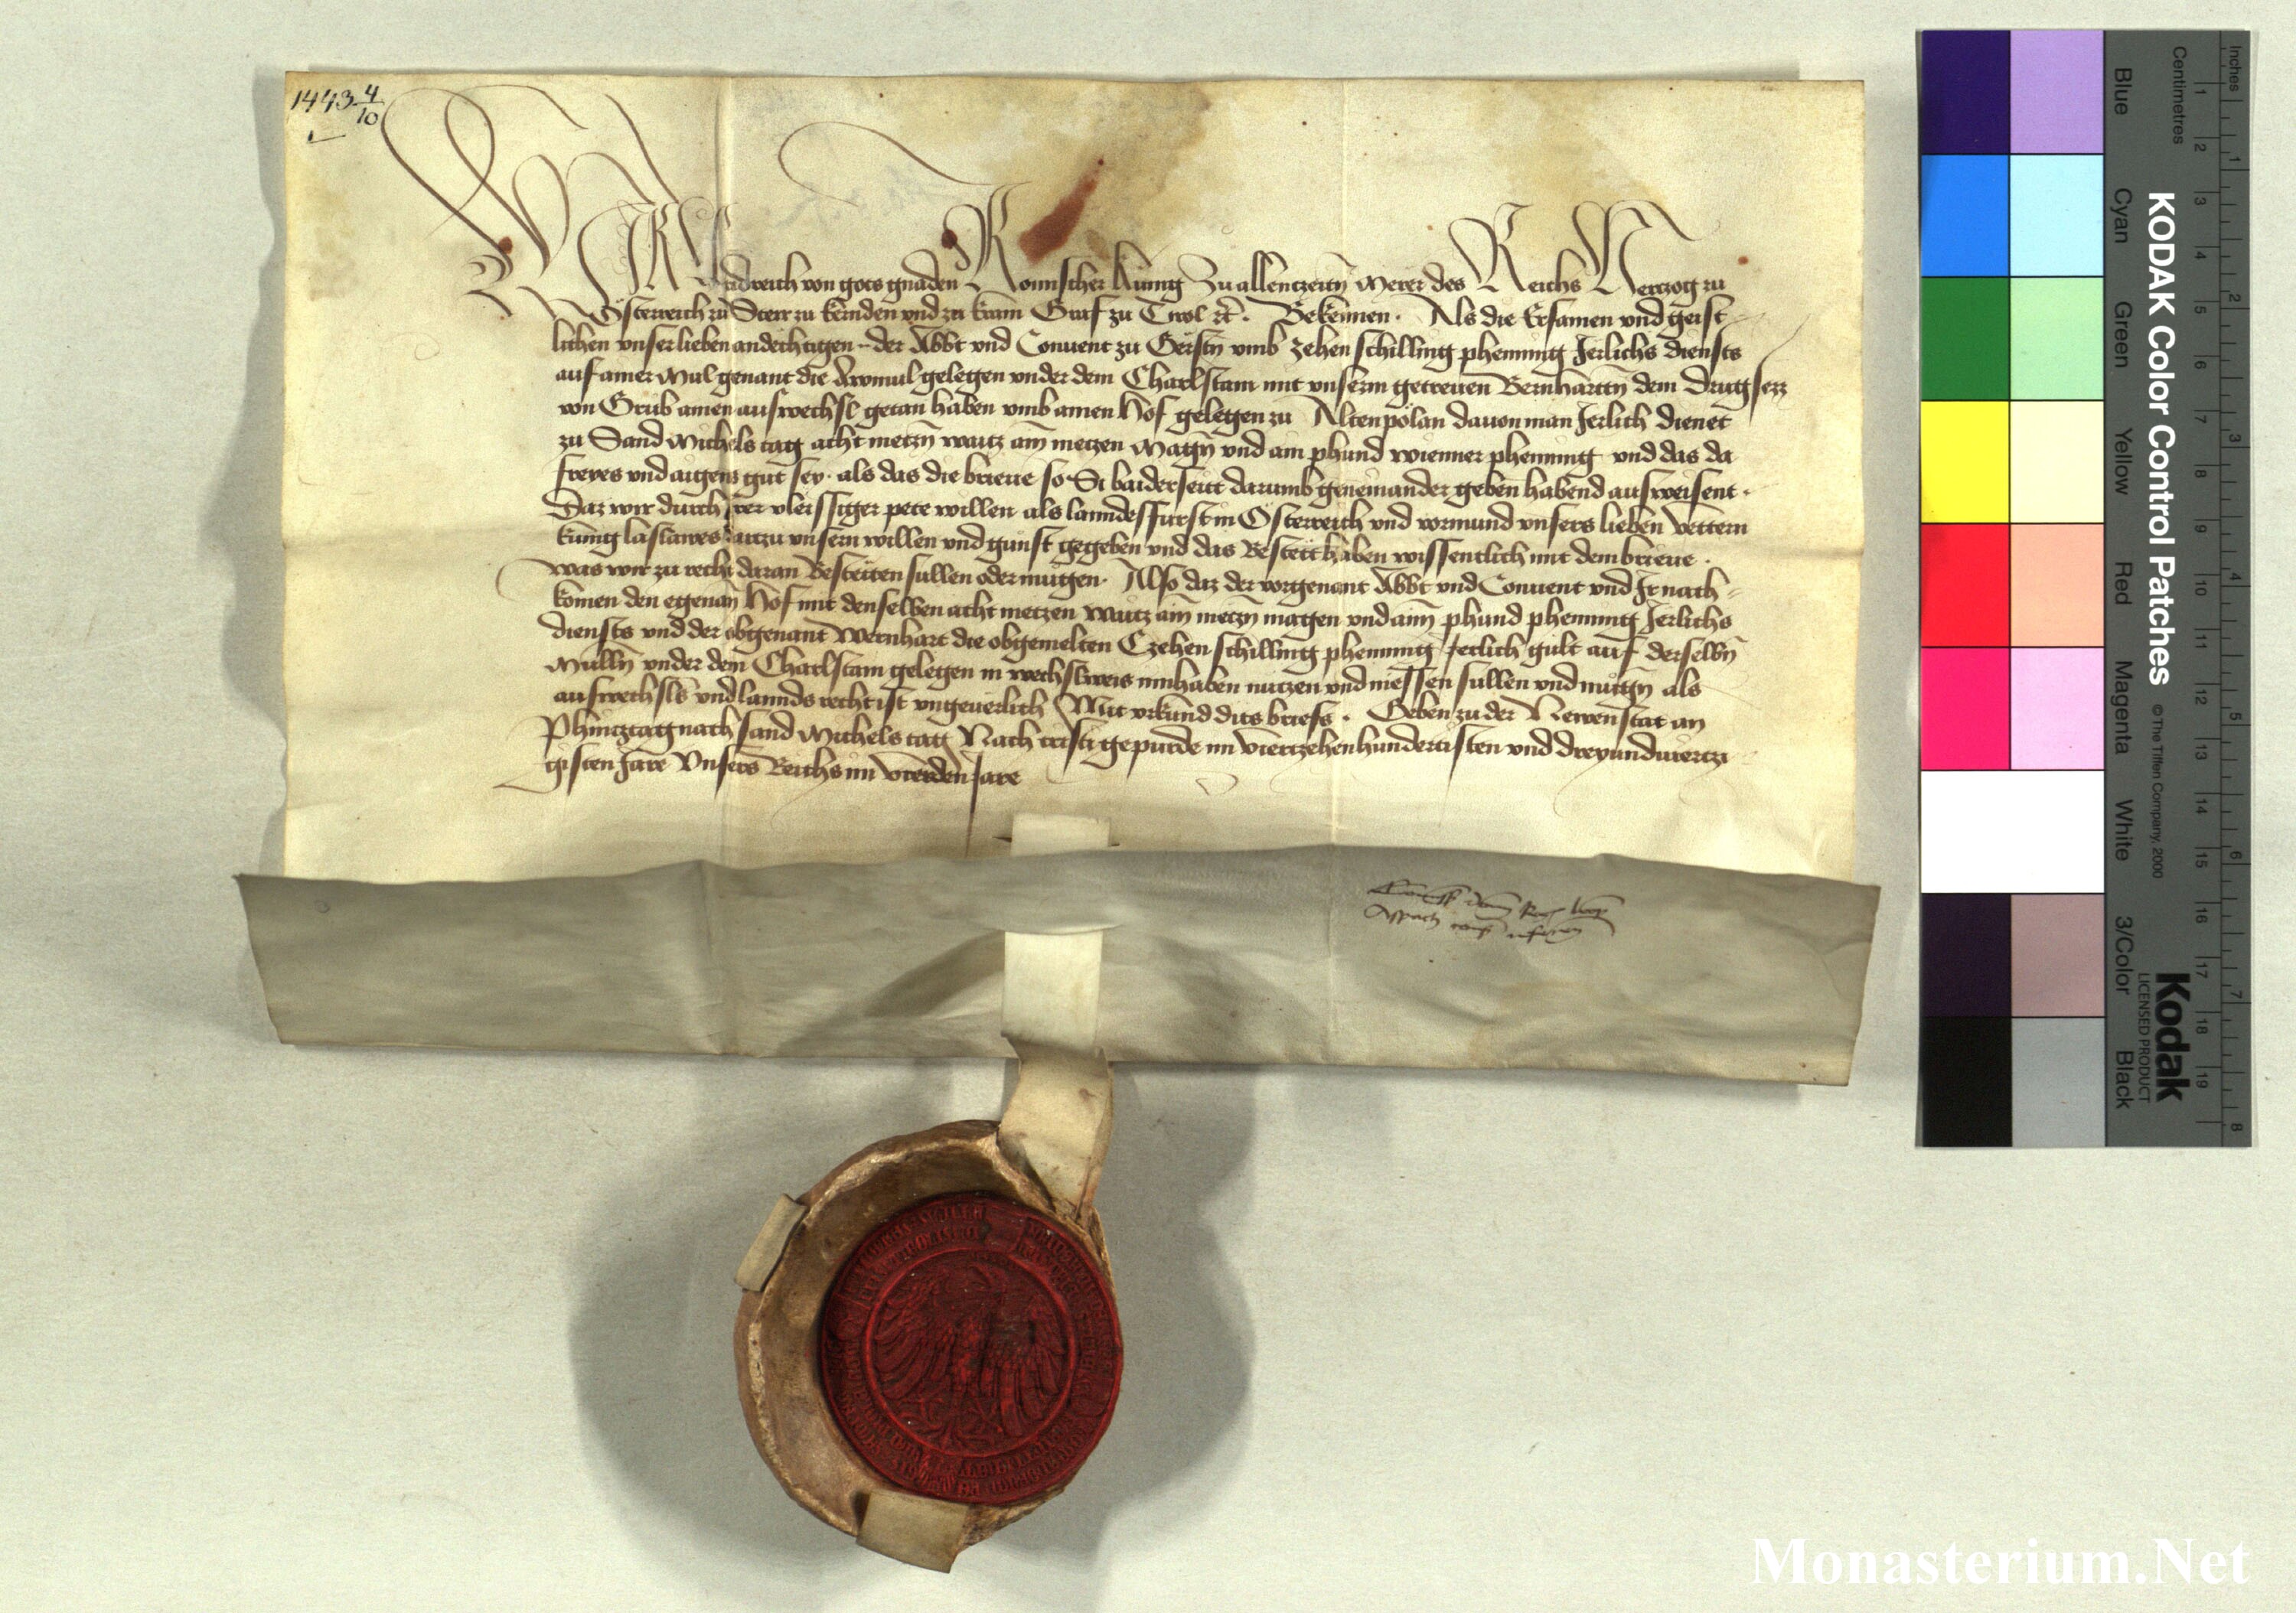 1443 4/10
WIR Fridreich von gots gnaden Romischer kunig Zu allenczeitn Merer des Reichs Herczog zu
Österreich zu Steir zu kernden und zu krain Graf zu Tirol etc. Bekennen. Als die Ersamen und geist
lichen unser lieben andechtigen .. der Abbt und Convent zu Gersten umb zehen schilling phenning Jerlichs diensts
auf ainer Mul genant die gelegen under dem Charlstain mit unserm getreuen Bernhartn dem Drugsecz
von Grub ainen auswechsl getan haben umb ainen hof gelegen zu Altenpölan davon man Jerlich dienet
zu Sand Michels tag acht meczn waicz ain meczen Magn und ain phund wienner phenning und das da
freyes und aigens gut sey. als das die brieve so Si baiderseitt darumb geneinander geben habend ausweisent.
Daz wir durch irer vleissiger pete willen als lanndesfurst in Österreich und vormund unsers lieben vettern
kunig laslawes darzu unsern willen und gunst gegeben und das Bestett haben wissentlich mit dem brieve.
was wir zu recht daran Bestetten sullen oder mugen. Also daz der vorgenant Abbt und Convent und Ir nach-
komen den egenan hof mit denselben acht meczen waicz ain meczn magen und ain phund phenning Jerlichs
diensts und der obgenant Wernhart die obgemelten Czehen schilling phenning Jerlich gult auf derselbn
Mulln under dem Charlstain gelegen in wechslweis innhaben nuczen und niessen sullen und mugn als
auswechsls und lannds recht ist ungeverlich Mit urkund dits briefs. Geben zu der Newenstat an
Phincztag nach sand Michels tag Nach cristi gepurde im vierczehenhundertisten und dreyundvierczi
gisten Jare Unsers Reichs im vierden Jare
KODAK Color Control Patches © The Tiffen Company, 2000
Kodak
LICENSED PRODUCT
Blue Cyan Green Yellow Red Magenta White 3/Color Black
Inches 1 2 3 4 5 6 7 8
Centimetres 1 2 3 4 5 6 7 8 9 10 11 12 13 14 15 16 17 18 19
Monasterium.Net